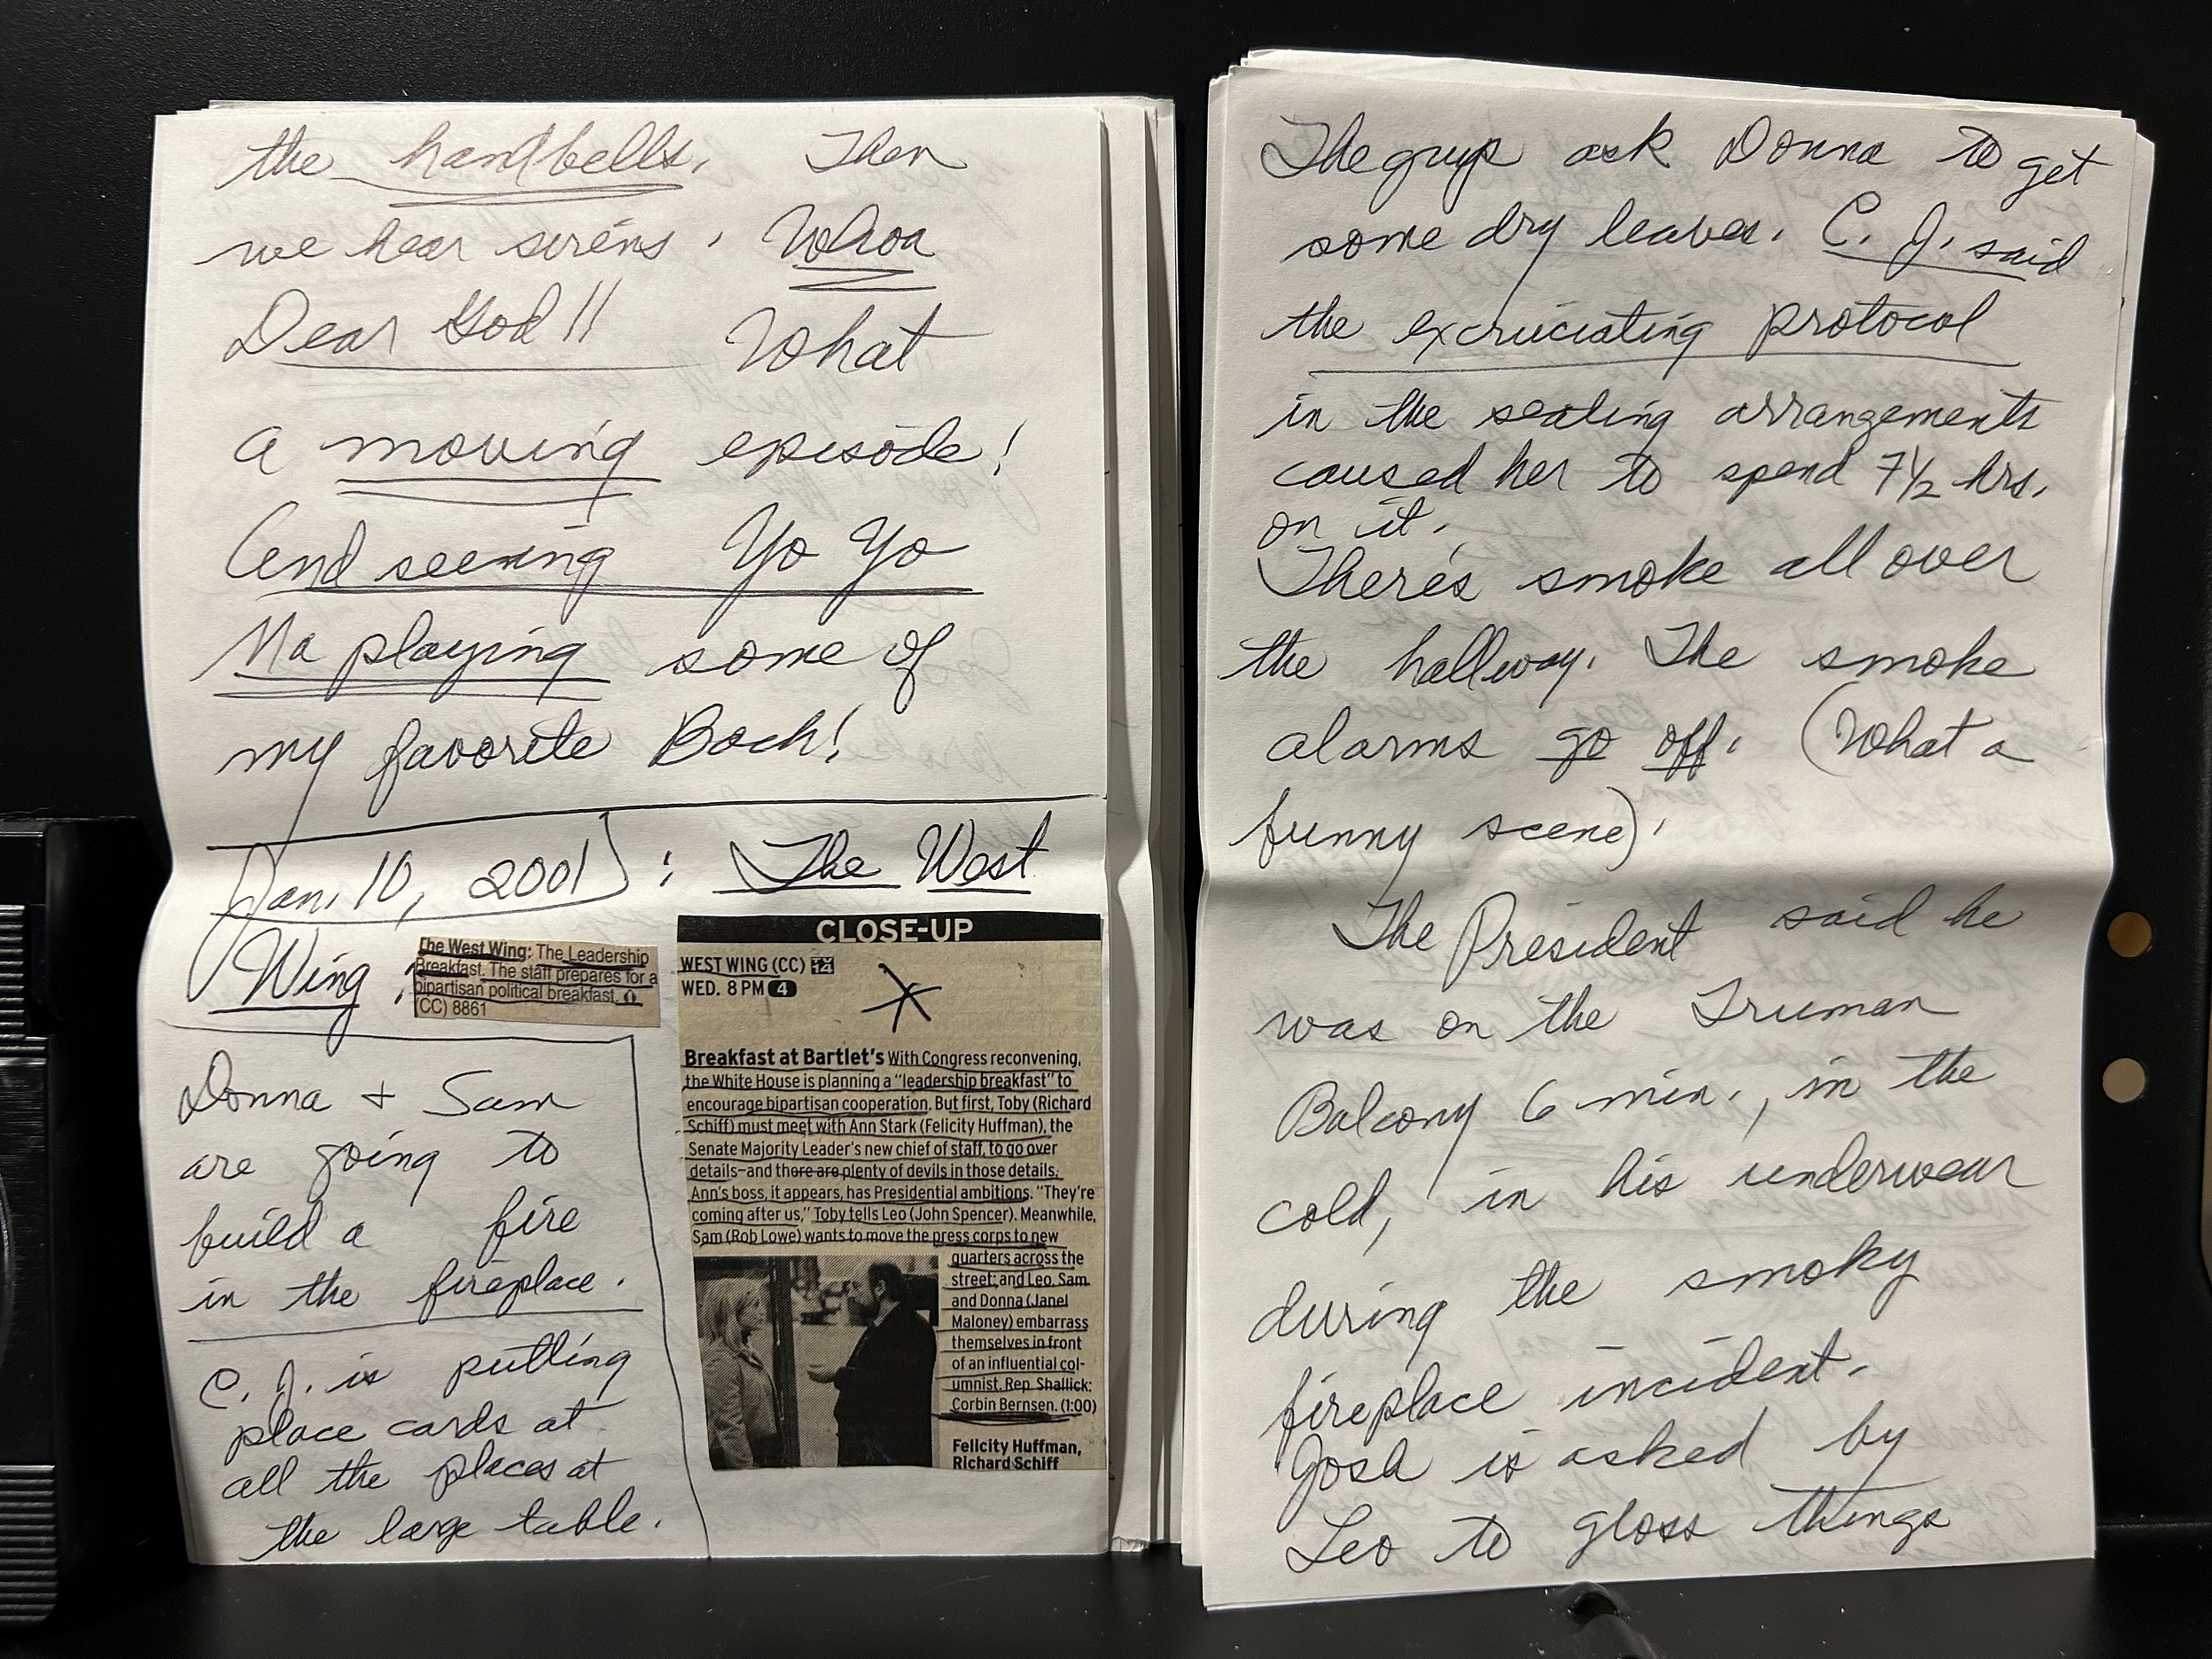 the handbells. Then
we hear sirens. Whoa
Dear God!! What
a moving episode!
And seeing Yo Yo
Ma playing some of
my favorite Bach!
Jan. 10, 2001: The West
Wing:
The West Wing: The Leadership
Breakfast. The staff prepares for a
bipartisan political breakfast.
(CC) 8861
Donna + Sam
are going to
build a fire
in the fireplace.
C. J. is putting
place cards at
all the places at
the large table.
CLOSE-UP
WEST WING (CC) 14
WED. 8 PM 4
Breakfast at Bartlet's With Congress reconvening,
the White House is planning a "leadership breakfast" to
encourage bipartisan cooperation. But first, Toby (Richard
Schiff) must meet with Ann Stark (Felicity Huffman), the
Senate Majority Leader's new chief of staff, to go over
details—and there are plenty of devils in those details.
Ann's boss, it appears, has Presidential ambitions. "They're
coming after us," Toby tells Leo (John Spencer). Meanwhile,
Sam (Rob Lowe) wants to move the press corps to new
quarters across the
street; and Leo, Sam
and Donna (Janel
Maloney) embarrass
themselves in front
of an influential col-
umnist. Rep. Shallick:
Corbin Bernsen. (1:00)
Felicity Huffman,
Richard Schiff
The guys ask Donna to get
some dry leaves. C. J. said
the excruciating protocol
in the seating arrangements
caused her to spend 7½ hrs.
on it.
There's smoke all over
the hallway. The smoke
alarms go off. (What a
funny scene).
The President said he
was on the Truman
Balcony 6 min., in the
cold, in his underwear
during the smoky
fireplace incident.
Josh is asked by
Leo to gloss things